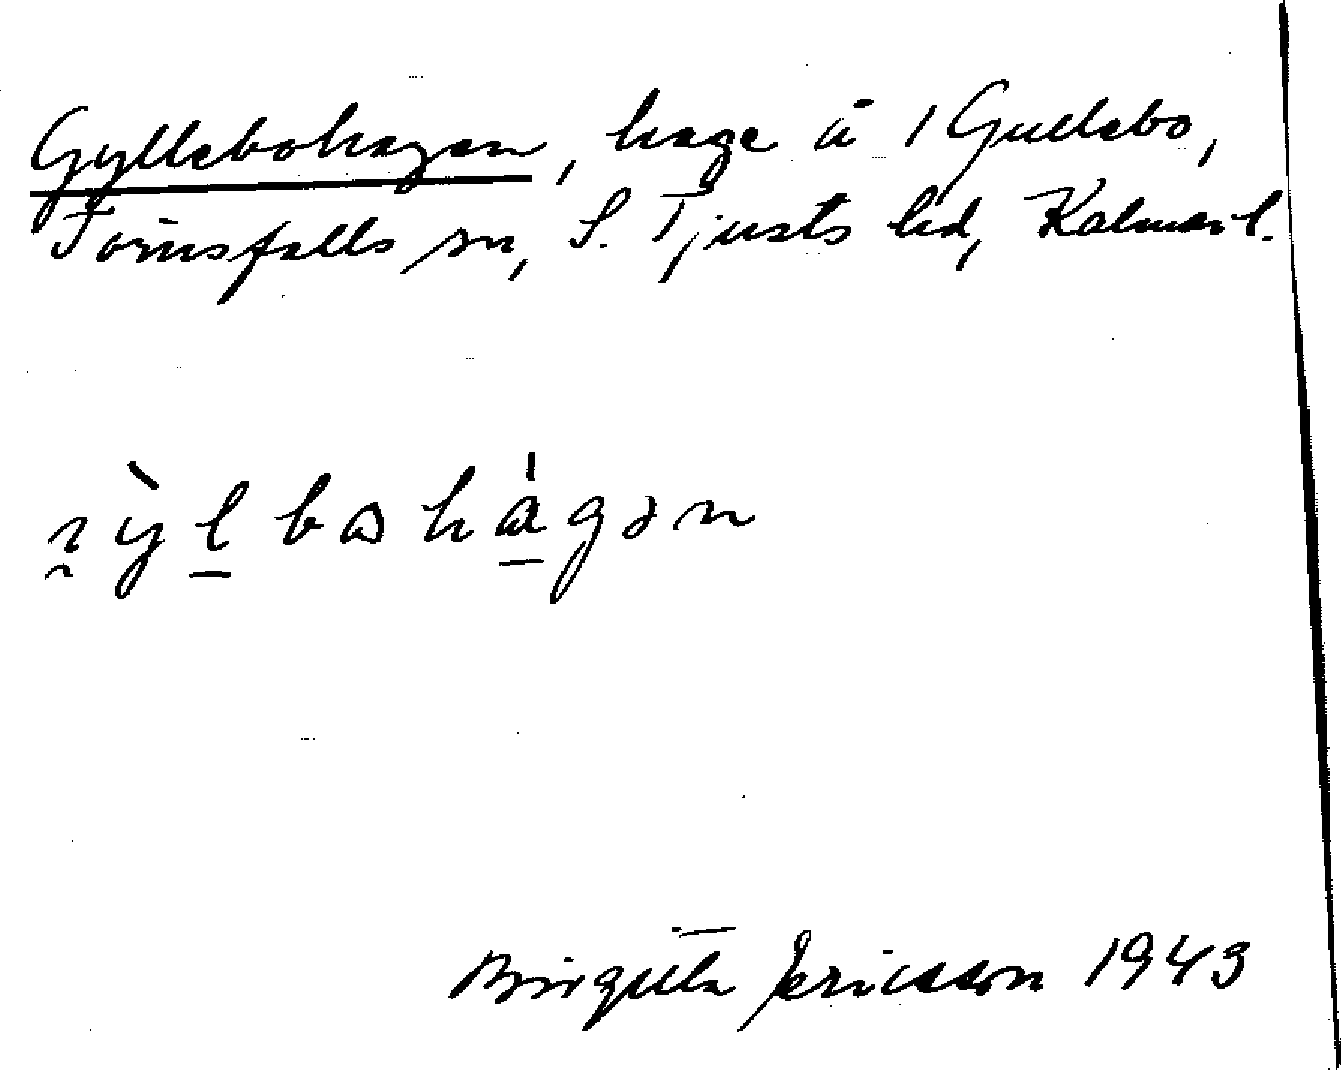 Gyllebohagen, hage å 1 Gullebo,
Törnsfalls sn, S. Tjusts hd, Kalmar l.
Birgitta Ericsson 1943